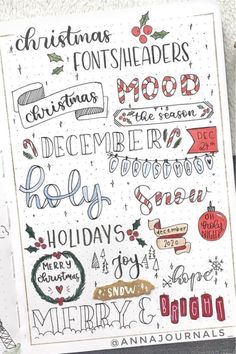 christmas
FONTS/HEADERS
christmas
MOOD
'tis the season
DECEMBER
DEC
24th
CHRISTMAS
holy
Snow
HOLIDAYS
december
2020
OH
holy
NIGHT
MERRY
christmas
joy
SNOW
hope
MERRY &
BRIGHT
@ANNAJOURNALS